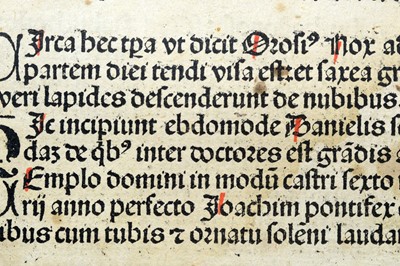 Circa hec tꝑa vt dicit Orosiꝰ Nox ad
partem diei tendi visa est: et saxea gr
veri lapides descenderunt de nubibus.
Hic incipiunt ebdomode Danielis se
daz de qbꝰ inter doctores est grãdis a
Templo domini in modũ castri sexto
rij anno perfecto Joachim pontifex
ibus cum tubis ⁊ ornatu soleni laudan